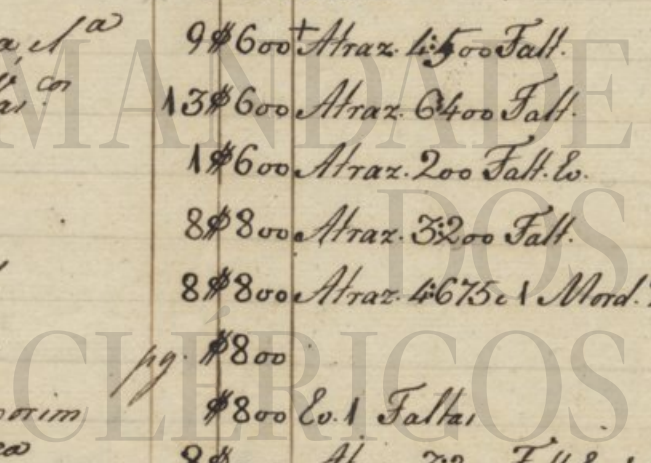 9$600 + Atraz. 4:500 Falt.
13$600 Atraz. 6400 Falt.
1$600 Atraz. 200 Falt. Ev.
8$800 Atraz. 3:200 Falt.
8$800 Atraz. 4:675 e 1 Mord.
pg. $800
orim $800 Ev. 1 Faltas
MANDADE
DOS
CLÉRICOS